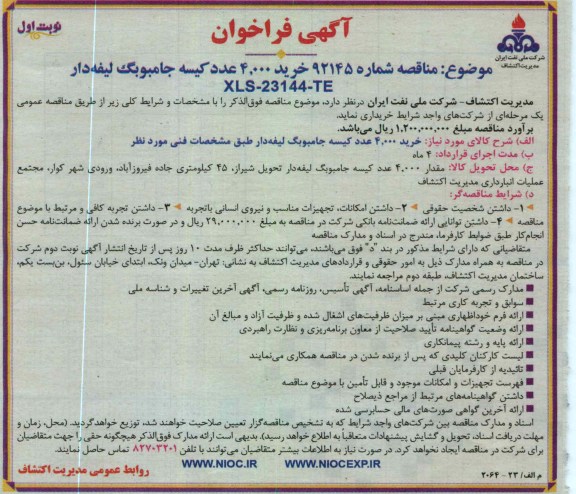 نوبت اول
آگهی فراخوان
شرکت ملی نفت ایران
مدیریت اکتشاف
موضوع: مناقصه شماره ۹۲۱۴۵ خرید ۴,۰۰۰ عدد کیسه جامبوبگ لیفه‌دار
XLS-23144-TE
مدیریت اکتشاف- شرکت ملی نفت ایران درنظر دارد، موضوع مناقصه فوق‌الذکر را با مشخصات و شرایط کلی زیر از طریق مناقصه عمومی
یک مرحله‌ای از شرکت‌های واجد شرایط خریداری نماید.
برآورد مناقصه مبلغ ۱,۲۰۰,۰۰۰,۰۰۰ ریال می‌باشد.
الف) شرح کالای مورد نیاز: خرید ۴,۰۰۰ عدد کیسه جامبوبگ لیفه‌دار طبق مشخصات فنی مورد نظر
ب) مدت اجرای قرارداد: ۴ ماه
ج) محل تحویل کالا: مقدار ۴,۰۰۰ عدد کیسه جامبوبگ لیفه‌دار تحویل شیراز، ۴۵ کیلومتری جاده فیروزآباد، ورودی شهر کوار، مجتمع
عملیات انبارداری مدیریت اکتشاف
د) شرایط مناقصه‌گر:
۱- داشتن شخصیت حقوقی ۲- داشتن امکانات، تجهیزات مناسب و نیروی انسانی باتجربه ۳- داشتن تجربه کافی و مرتبط با موضوع
مناقصه ۴- داشتن توانایی ارائه ضمانت‌نامه بانکی شرکت در مناقصه به مبلغ ۲۹,۰۰۰,۰۰۰ ریال و در صورت برنده شدن ارائه ضمانت‌نامه حسن
انجام‌کار طبق ضوابط کارفرما، مندرج در اسناد و مدارک مناقصه
متقاضیانی که دارای شرایط مذکور در بند "د" فوق می‌باشند، می‌توانند حداکثر ظرف مدت ۱۰ روز پس از تاریخ انتشار آگهی نوبت دوم شرکت
در مناقصه به همراه مدارک ذیل به امور حقوقی و قراردادهای مدیریت اکتشاف به نشانی: تهران- میدان ونک، ابتدای خیابان سئول، بن‌بست یکم،
ساختمان مدیریت اکتشاف، طبقه دوم مراجعه نمایند.
■ مدارک رسمی شرکت از جمله اساسنامه، آگهی تأسیس، روزنامه رسمی، آگهی آخرین تغییرات و شناسه ملی
■ سوابق و تجربه کاری مرتبط
■ ارائه فرم خوداظهاری مبنی بر میزان ظرفیت‌های اشغال شده و ظرفیت آزاد و مبالغ آن
■ ارائه وضعیت گواهینامه تأیید صلاحیت از معاون برنامه‌ریزی و نظارت راهبردی
■ ارائه پایه و رشته پیمانکاری
■ لیست کارکنان کلیدی که پس از برنده شدن در مناقصه همکاری می‌نمایند
■ تائیدیه از کارفرمایان قبلی
■ فهرست تجهیزات و امکانات موجود و قابل تأمین با موضوع مناقصه
■ داشتن گواهینامه‌های مرتبط از مراجع ذیصلاح
■ ارائه آخرین گواهی صورت‌های مالی حسابرسی شده
اسناد و مدارک مناقصه بین شرکت‌های واجد شرایط که به تشخیص مناقصه‌گزار تعیین صلاحیت خواهند شد، توزیع خواهدگردید. (محل، زمان و
مهلت دریافت اسناد، تحویل و گشایش پیشنهادات متعاقباً به اطلاع خواهد رسید). بدیهی است ارائه مدارک فوق‌الذکر هیچگونه حقی را جهت متقاضیان
برای شرکت در مناقصه ایجاد نخواهد کرد. در صورت نیاز به اطلاعات بیشتر متقاضیان می‌توانند با تلفن ۸۲۷۰۳۲۰۱ تماس حاصل نمایند.
WWW.NIOC.IR WWW.NIOCEXP.IR
روابط عمومی مدیریت اکتشاف
م الف/ ۲۳ - ۲۰۶۴